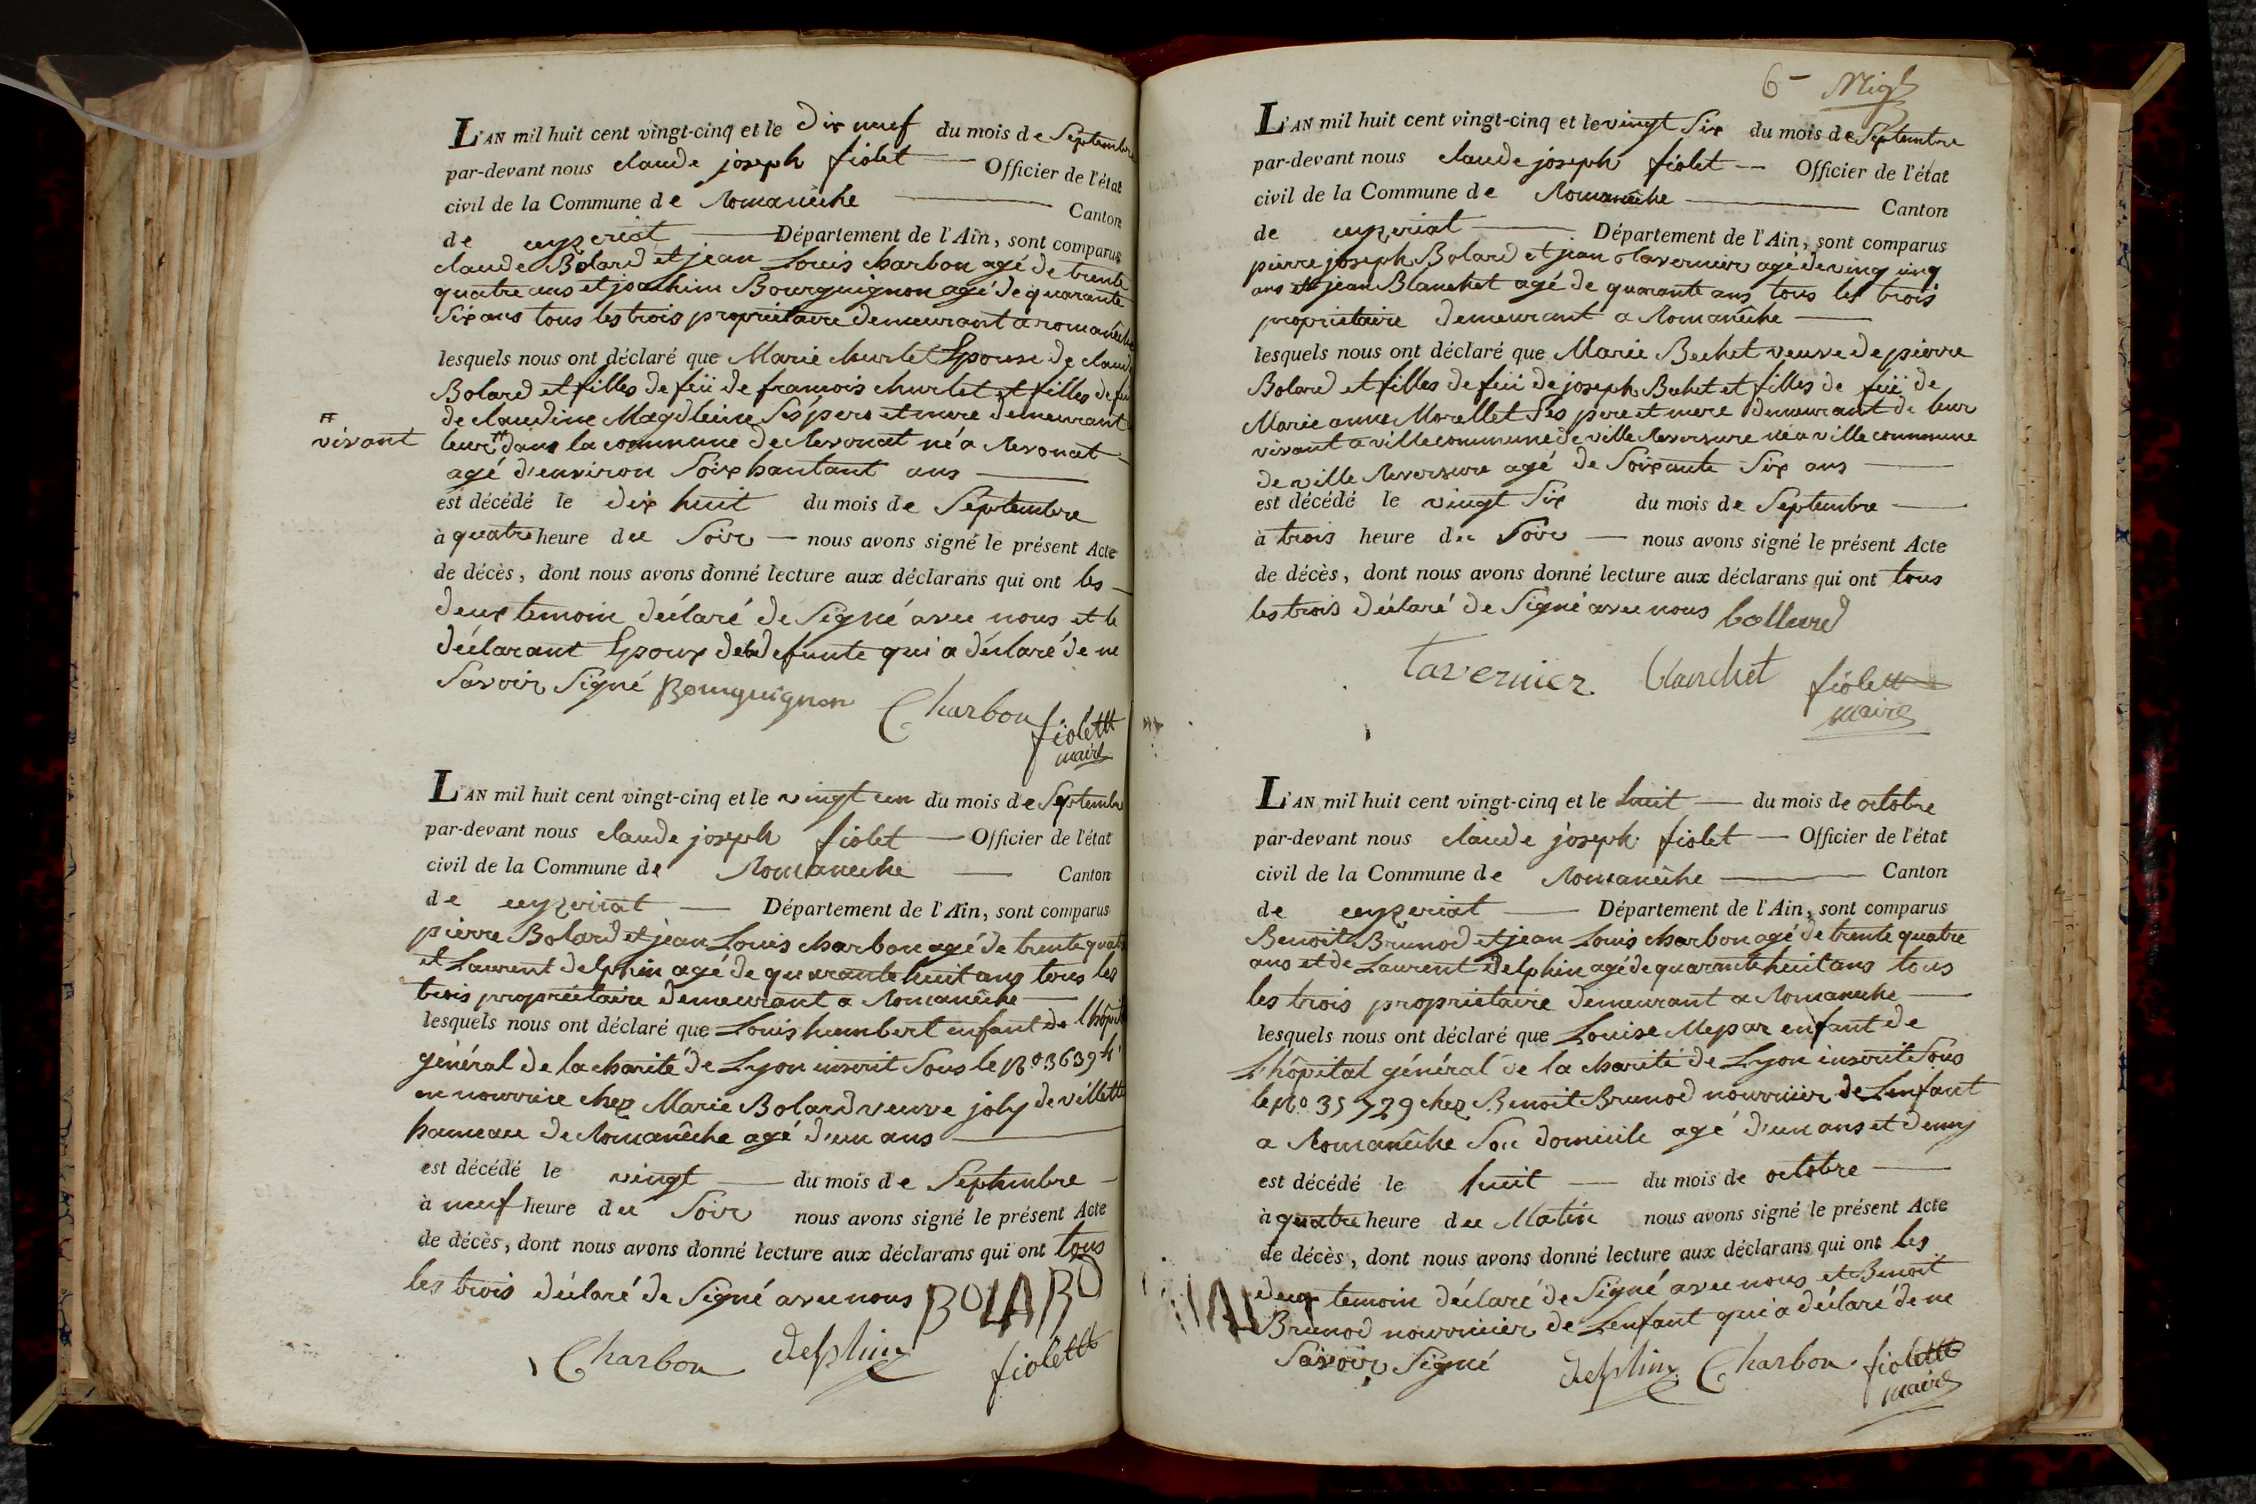 L'AN mil huit cent vingt-cinq et le dix neuf du mois de Septembre
par-devant nous claude joseph fiolet Officier de l'état
civil de la Commune de Romanêche Canton
de ceyzeriat Département de l'Ain, sont comparus
claude Bolard et jean Louis charbon agé de trente
quatre ans et joachim Bourguignon agé de quarante
Six ans tous les trois proprietaire demeurant a romanêche
lesquels nous ont déclaré que Marie churlet Epouse de claude
Bolard et filles de feü de francois churlet et filles de feu
de claudine Magdleine Ses pere et mere demeurant
vivant
leur dans la commune de Revonat né a Revonat
agé d'environ Soixhantant ans
est décédé le dix huit du mois de Septembre
à quatre heure du Soir nous avons signé le présent Acte
de décès, dont nous avons donné lecture aux déclarans qui ont les
deux temoin déclaré de Signé avec nous et le
déclarant Epoux de la defunte qui a déclaré de ne
Savoir Signé Bourguignon
Charbon
fiolett
maire
L'AN mil huit cent vingt-cinq et le vingt un du mois de Septembre
par-devant nous claude joseph fiolet Officier de l'état
civil de la Commune de Romaneche Canton
de ceyzeriat Département de l'Ain, sont comparus
pierre Bolard et jean Louis charbon agé de trente quatre
et Laurent delphin agé de quarante huit ans tous les
trois propriétaire demeurant a Romanêche
lesquels nous ont déclaré que Louis humbert enfant de l'hôpital
général de la charité de Lyon inscrit Sous le No 3639
en nourrice chez Marie Bolard veuve joly de villette
hameau de Romanêche agé d'un ans
est décédé le vingt du mois de Septembre
à neuf heure du Soir nous avons signé le présent Acte
de décès, dont nous avons donné lecture aux déclarans qui ont tous
les trois déclaré de Signé avec nous BOLARD
Charbon delphin fiolett
6
L'AN mil huit cent vingt-cinq et le vingt Six du mois de Septembre
par-devant nous claude joseph fiolet Officier de l'état
civil de la Commune de Romanêche Canton
de ceyzeriat Département de l'Ain, sont comparus
pierre joseph Bolard et jean tavernier agé de vinq cinq
ans et jean Blanchet agé de quarante ans tous les trois
proprietaire demeurant a Romanêche
lesquels nous ont déclaré que Marie Bechet veuve de pierre
Bolard et filles de feü de joseph Bechet et filles de feü de
Marie anne Morellet Ses pere et mere demeurant de leur
vivant a ville commune de ville Reversure né a ville commune
de ville Reversure agé de Soixante Six ans
est décédé le vingt Six du mois de Septembre
à trois heure du Soir nous avons signé le présent Acte
de décès, dont nous avons donné lecture aux déclarans qui ont tous
les trois déclaré de Signé avec nous bollard
tavernier blanchet fiolett
maire
L'AN mil huit cent vingt-cinq et le huit du mois de octobre
par-devant nous claude joseph fiolet Officier de l'état
civil de la Commune de Romanêche Canton
de ceyzeriat Département de l'Ain, sont comparus
Benoit Brunod et jean Louis charbon agé de trente quatre
ans et de Laurent delphin agé de quarante huit ans tous
les trois proprietaire demeurant a Romaneche
lesquels nous ont déclaré que Louise Mepar enfant de
L'hôpital général de la charité de Lyon inscrit Sous
le No 35729 chez Benoit Brunod nourricier de Lenfant
a Romanêche Son domicile agé d'un ans et demy
est décédé le huit du mois de octobre
à quatre heure du Matin nous avons signé le présent Acte
de décès, dont nous avons donné lecture aux déclarans qui ont les
deux temoin déclaré de Signé avec nous et Benoit
Brunod nourricier de Lenfant qui a déclaré de ne
Savoir Signé delphin Charbon fiolett
maire